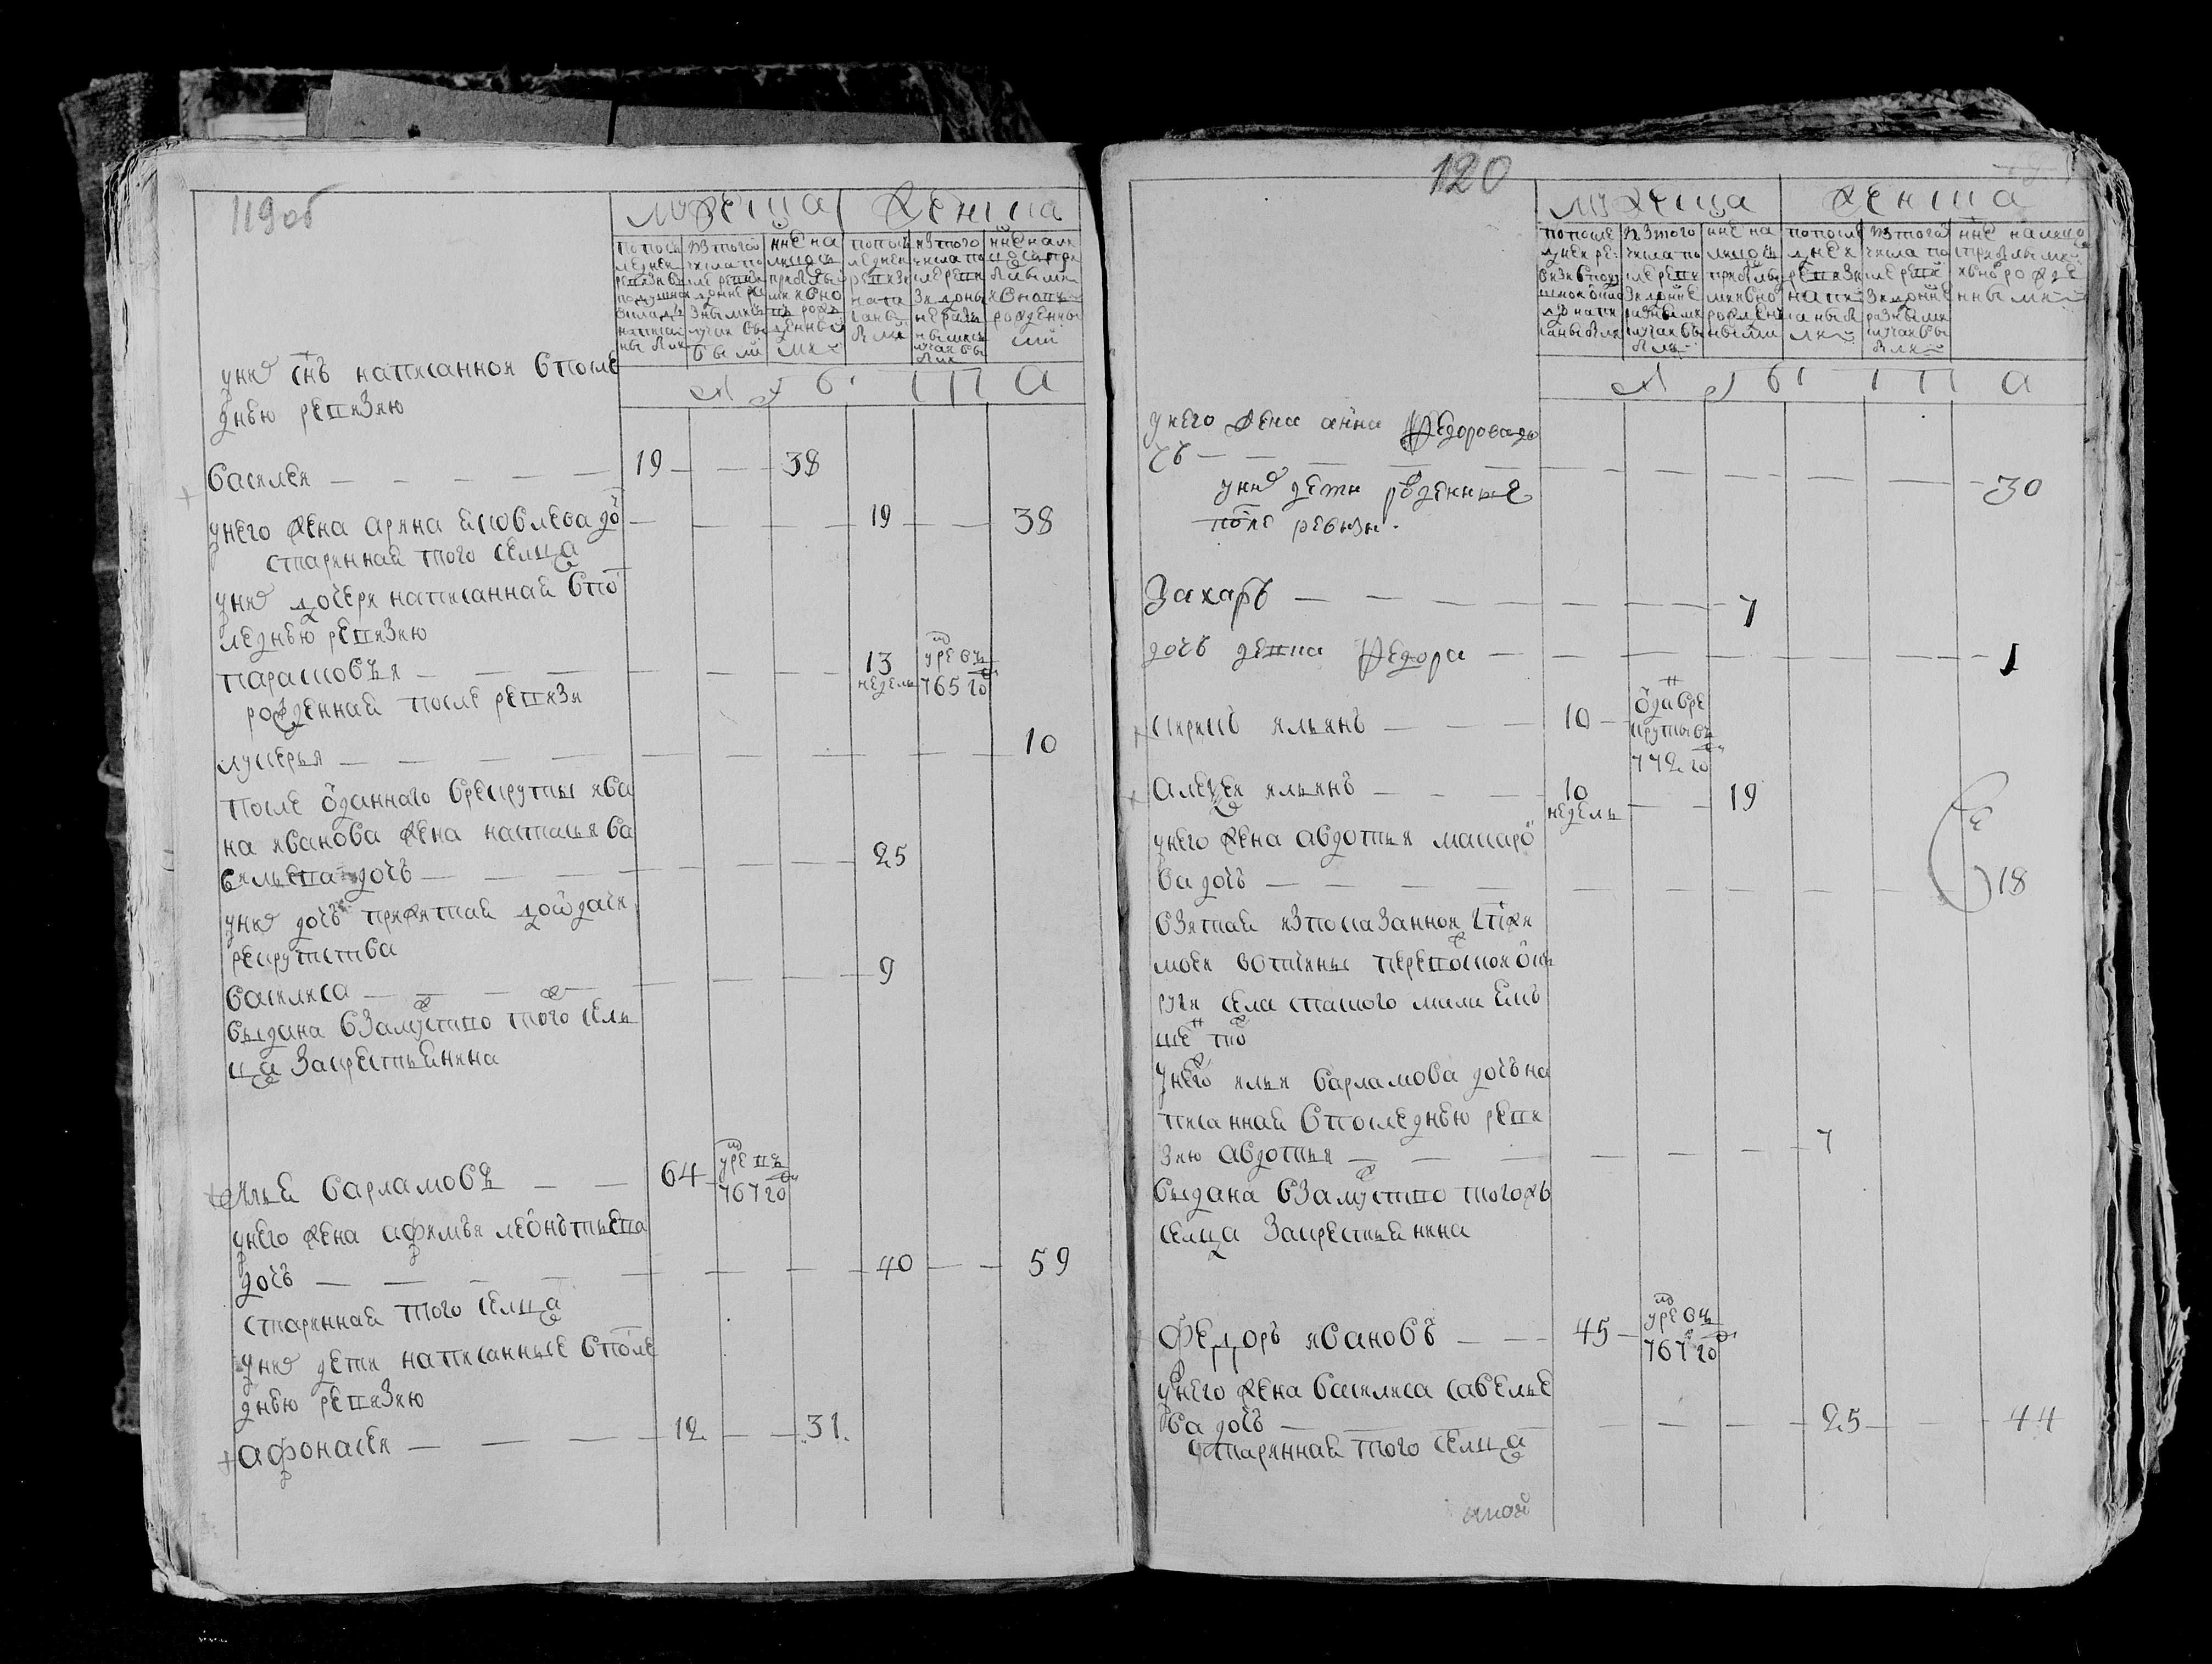 119об
мужеска
женска
попосле
дней
ревизи в
подушной
окладъ
написа
ны были
изтого
числа по
сле ревизи
до нне ра
зными
случаи вы
были
нне на
лицо съ
прибылы
ми вно
въ рож
денны
ми
попосл
едней
ревизи
напи
саны
были
изтого
числа по
сле реви
зи донне
разны
ми
случаи вы
были
нне нали
цо съ при
былыми
и внопь
рожденны
ми
лѣта
у них снъ написанной впосле
днею ревизию
василей — — — — — 19 — — 38
унего жена арина яковлева до — — — — 19 — — 38
стариннай того селца
у них дочери написаннай впо
леднею ревизию
парасковья — — — — — 13 недель умре въ 765 го
рожденнай после ревизи
лукерья — — — — — 10
после отданнаго врекруты ива
на иванова жена наталья ва
сильева дочь — — — — 25
у них дочь прижитай до отдачи
рекрутства
василиса — — — — — 9
выдана взамужство того сель
ца закрестьянина
илья варламовъ — — 64 умре въ 767 го
унего жена афимья леонтьева
дочь — — — — — 40 — — 59
стариннай того селца
у них дети написанные впосле
днею ревизию
афонасей — — — — 12 — — 31.
120
мужеска
женска
попосле
дней ре
визи впод
ушной окла
дъ напи
саны были
изтого
числа по
сле реви
зи донне
разными
случаи вы
были
нне на
лицо съ
прибылы
ми вно
рожден
ными
попосле
дней
ревизи
напи
саны бы
ли
изтого
числа по
сле реви
зи донне
разными
случаи вы
были
нне налицо
с прибылыми
и вно рожде
нными
лѣта
унего жена анна федорова до
чь — — — — — 30
у них дети рожденные
после ревизи.
Захаръ — — — — — 7
дочь девка федора — — — — — 1
кирилъ ильинъ — — — 10 — отдан вре круты въ 772 го
алексей ильинъ — — — 10 недель — — 19
унего жена авдотья макаро
ва дочь — — — — — 18
взятай изпоказанной гпжи
моей вотчины
села
унего ильи варламова дочь на
писаннай впоследнею реви
зию авдотья — — — — — 7
выдана взамужство тогожъ
селца закрестьянина
федоръ ивановъ — — 45 — умре въ 767 го
унего жена василиса савелье
ва дочь — — — — — 25 — — 44
стариннай того селца